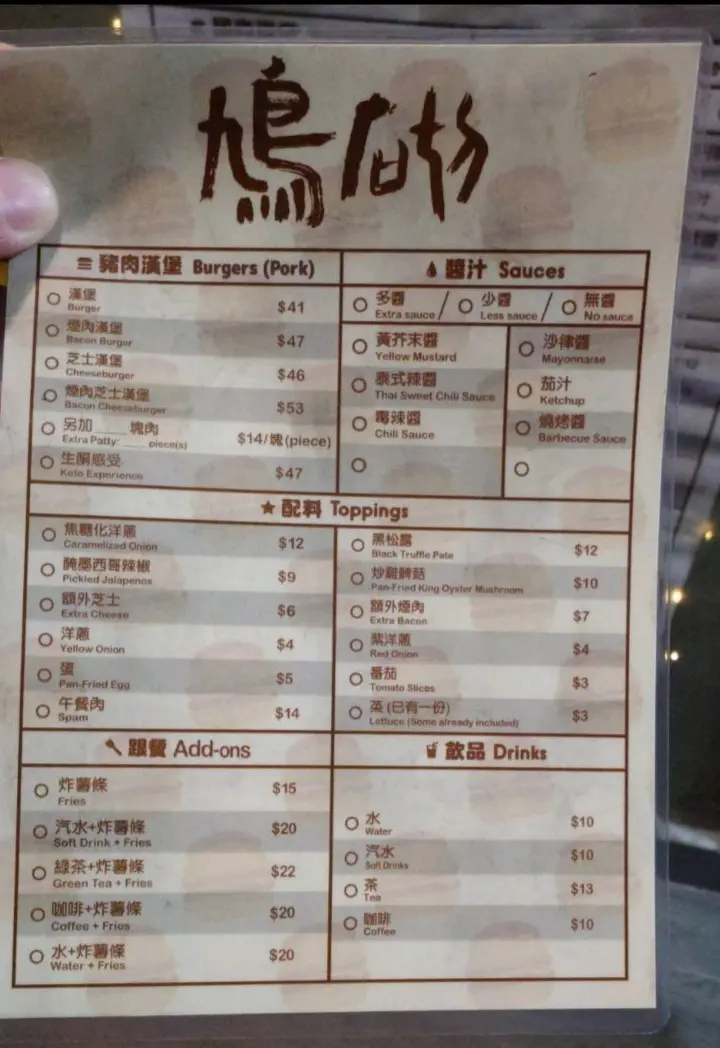 豬肉漢堡 Burgers (Pork)
漢堡
Burger $41
煙肉漢堡
Bacon Burger $47
芝士漢堡
Cheeseburger $46
煙肉芝士漢堡
Bacon Cheeseburger $53
另加____塊肉
Extra Patty:____piece(s) $14/塊(piece)
生酮感受
Keto Experience $47
醬汁 Sauces
多醬 / 少醬 / 無醬
Extra sauce / Less sauce / No sauce
黃芥末醬
Yellow Mustard
泰式辣醬
Thai Sweet Chili Sauce
毒辣醬
Chili Sauce
沙律醬
Mayonnaise
茄汁
Ketchup
燒烤醬
Barbecue Sauce
配料 Toppings
焦糖化洋蔥
Caramelized Onion $12
醃墨西哥辣椒
Pickled Jalapenos $9
額外芝士
Extra Cheese $6
洋蔥
Yellow Onion $4
蛋
Pan-Fried Egg $5
午餐肉
Spam $14
黑松露
Black Truffle Pate $12
炒雞髀菇
Pan-Fried King Oyster Mushroom $10
額外煙肉
Extra Bacon $7
紫洋蔥
Red Onion $4
番茄
Tomato Slices $3
菜 (已有一份)
Lettuce (Some already included) $3
跟餐 Add-ons
炸薯條
Fries $15
汽水+炸薯條
Soft Drink + Fries $20
綠茶+炸薯條
Green Tea + Fries $22
咖啡+炸薯條
Coffee + Fries $20
水+炸薯條
Water + Fries $20
飲品 Drinks
水
Water $10
汽水
Soft Drinks $10
茶
Tea $13
咖啡
Coffee $10